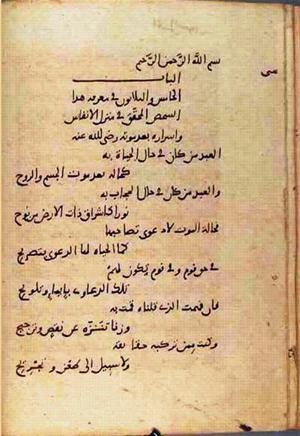 بسم الله الرحمن الرحيم
الباب
الخامس والثلاثون في معرفة هذا
الشخص المحقق في منزل الانفاس
واسراره بعد موته رضي الله عنه
العبد من كان في حال الحياة به
كحاله بعد موت الجسم والروح
والعبد من كان في حال الحجاب به
نورا كاشراق ذات الارض من يوح
فحالة الموت لا دعوى تصاحبها
كما الحياة لها الدعوى بتصريح
في حق قوم وفي قوم تكون لهم
تلك الدعاوى بايماء وتلويح
فان فهمت الذي قلناه قمت به
وزنا تنزه عن نقص وترجيح
وكنت ممن تزكيه حقائقه
ولا سبيل الى طعن وتجريح